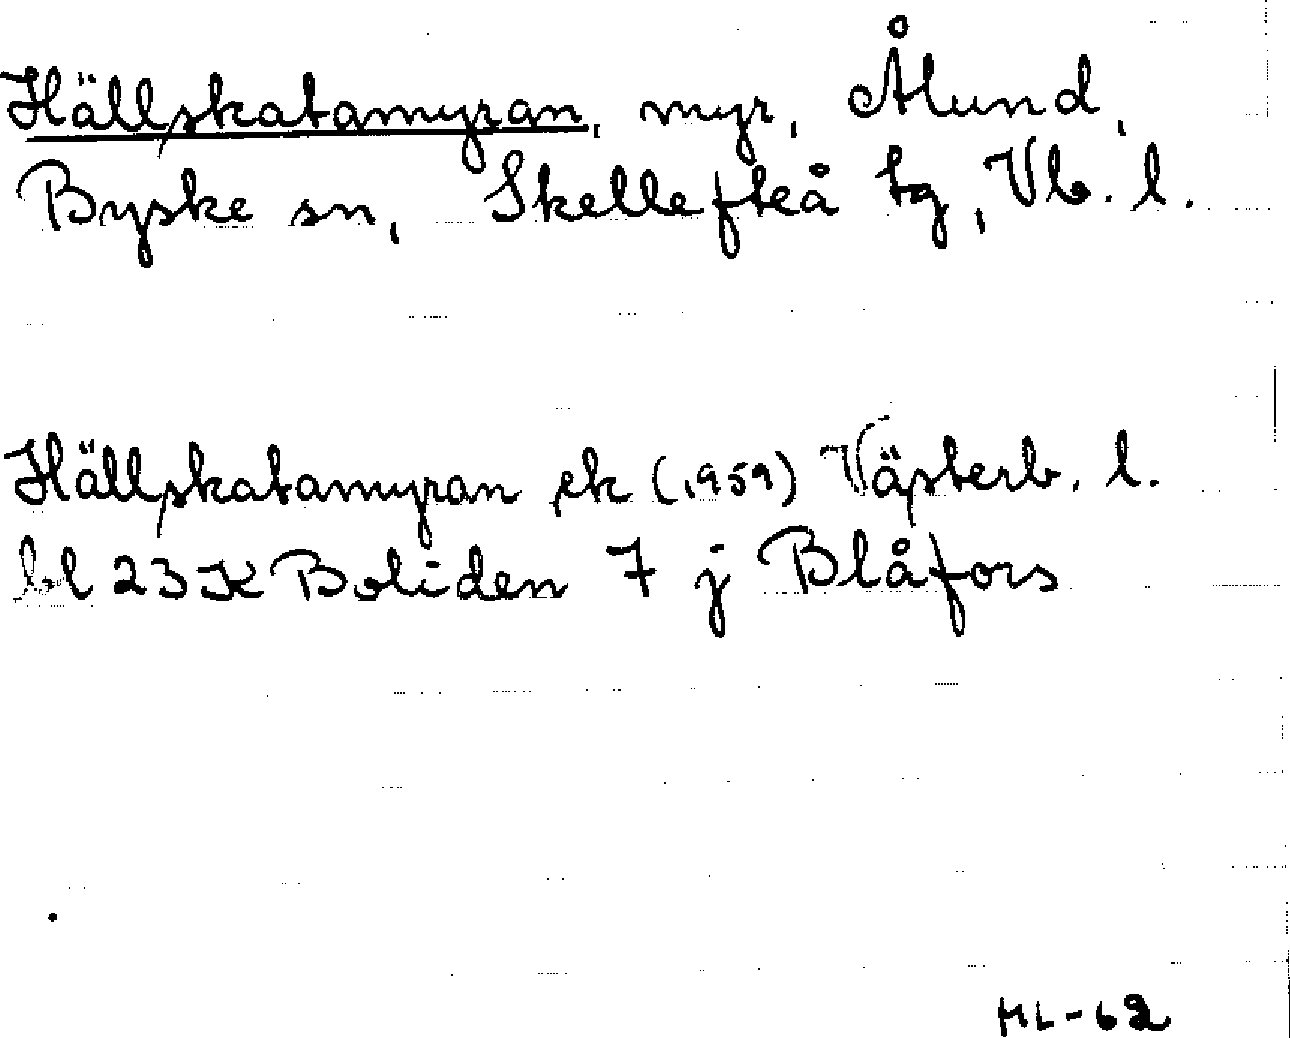 Hällskatamyran, myr, Ålund,
Byske sn, Skellefteå tg, Vb. l.
Hällskatamyran ek (1959) Västerb. l.
bl 23 K Boliden 7 j Blåfors
HL-62